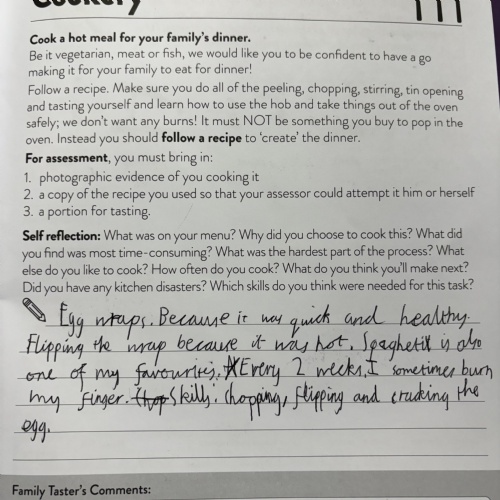 Cookery
Cook a hot meal for your family's dinner.
Be it vegetarian, meat or fish, we would like you to be confident to have a go
making it for your family to eat for dinner!
Follow a recipe. Make sure you do all of the peeling, chopping, stirring, tin opening
and tasting yourself and learn how to use the hob and take things out of the oven
safely; we don't want any burns! It must NOT be something you buy to pop in the
oven. Instead you should follow a recipe to 'create' the dinner.
For assessment, you must bring in:
1. photographic evidence of you cooking it
2. a copy of the recipe you used so that your assessor could attempt it him or herself
3. a portion for tasting.
Self reflection: What was on your menu? Why did you choose to cook this? What did
you find was most time-consuming? What was the hardest part of the process? What
else do you like to cook? How often do you cook? What do you think you'll make next?
Did you have any kitchen disasters? Which skills do you think were needed for this task?
Egg wraps. Because it was quick and healthy.
Flipping the wrap because it was hot. Spaghetii is also
one of my favourites. Every 2 weeks. I sometimes burn
my finger. Chop Skills: chopping, flipping and cracking the
egg.
Family Taster's Comments: